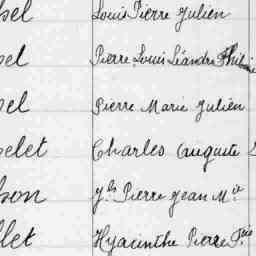 sel Louis Pierre Julien
sel Pierre Louis Léandre
sel Pierre Marie Julien
selet Charles Auguste
son Jh Pierre Jean M.ie
llet Hyacinthe Pierre F.çois